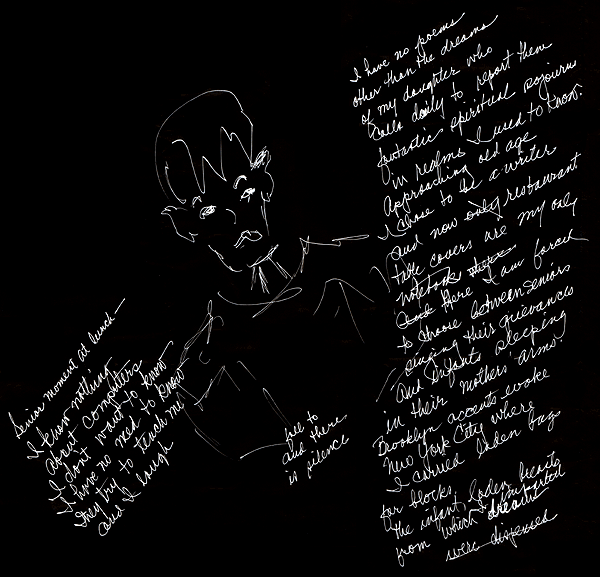 I have no poems
other than the dreams
of my daughter who
calls daily to report them
fantastic spiritual sojourns
in realms I used to know.
Approaching old age
I chose to be a writer
and now only restaurant
table covers are my only
notebook
and Here I am forced
to choose between seniors
singing their grievances
and Infants sleeping
in their mothers' arms.
Brooklyn accents evoke
New York City where
I carried laden bags
for blocks
the infant, laden hearts
from which dreams
were dispensed
Senior moment at lunch—
I know nothing
about computers
I don't want to know
I have no need to know
They try to teach me
and I laugh
fall to
and there
is silence